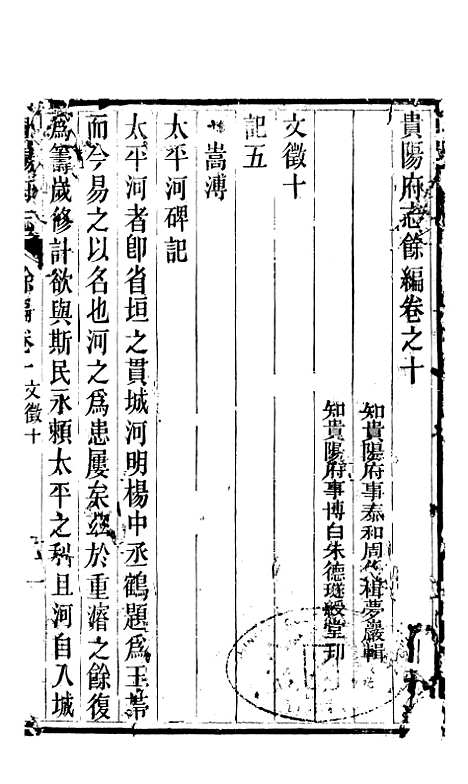 貴陽府志餘編卷之十
知貴陽府事泰和周作楫夢巖輯
知貴陽府事博白朱德璲綬堂刊
文徵十
記五
嵩溥
太平河碑記
太平河者卽省垣之貫城河明楊中丞鶴題爲玉帶
而今易之以名也河之爲患屢矣茲於重濬之餘復
爲籌歲修計欲與斯民永賴太平之利且河自入城
餘編卷十文徵十